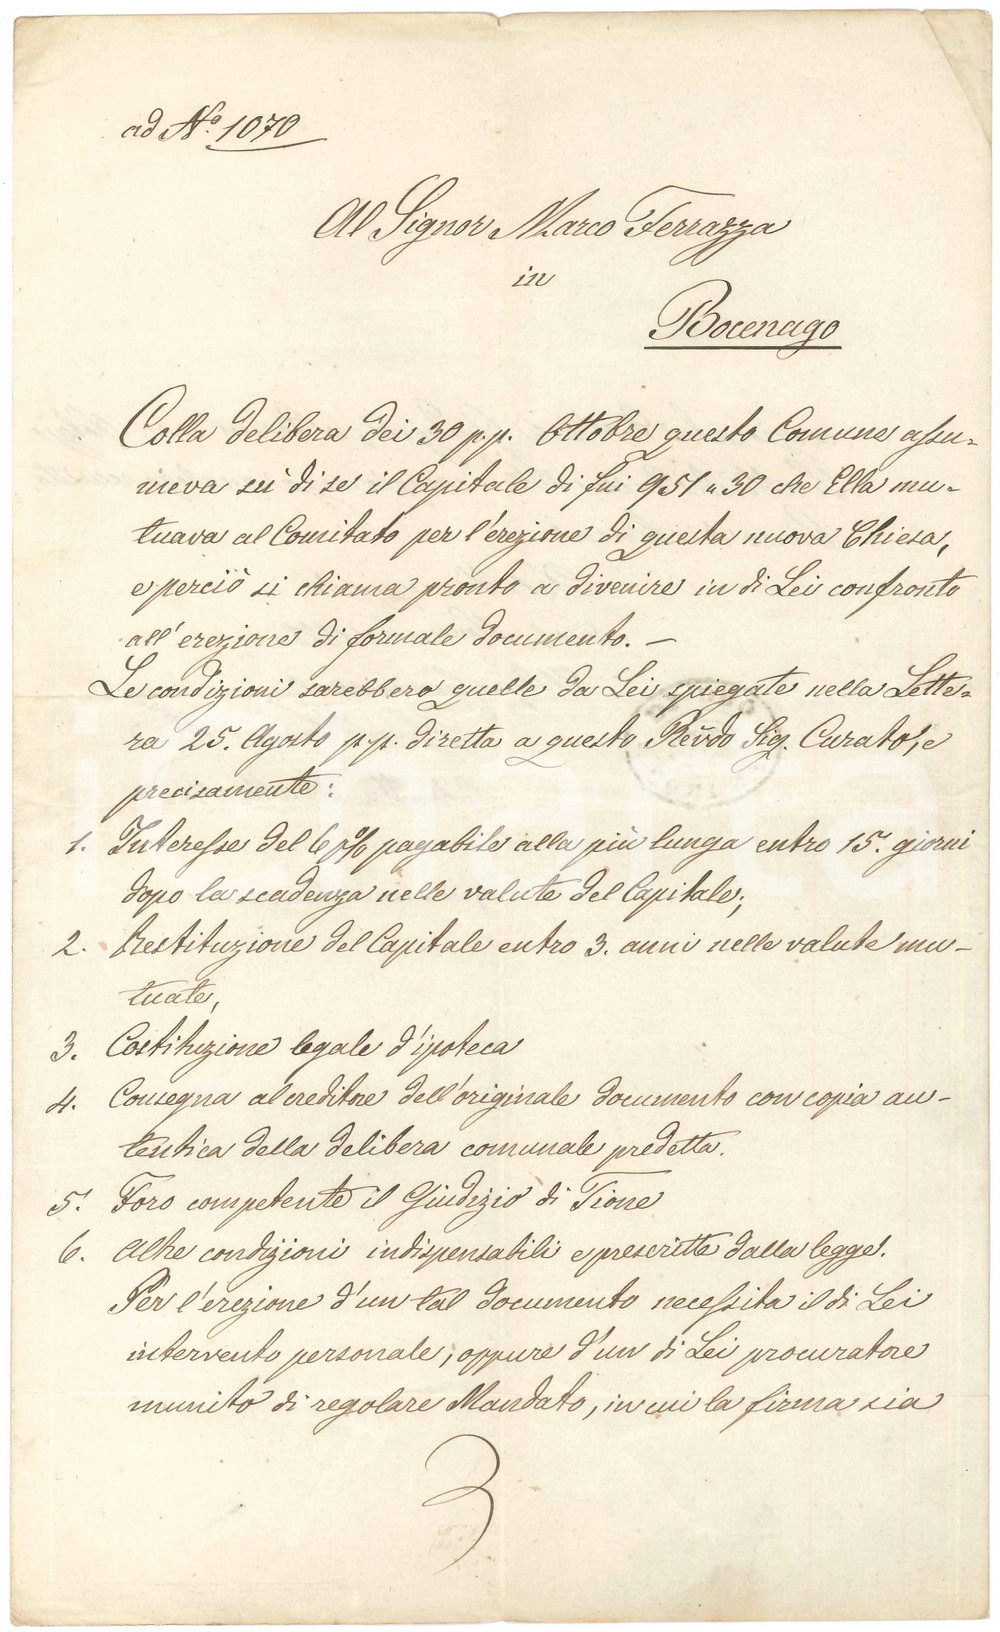 ad N.º 1070
Al Signor Marco Ferrazza
in
Bocenago
Colla delibera dei 30 p.p. Ottobre questo Comune assu-
meva sù di se il Capitale di fni 951 " 30 che Ella mu-
tuava al Comitato per l'erezione di questa nuova Chiesa,
e perciò si chiama pronto a divenire in di Lei confronto
all'erezione di formale documento. —
Le condizioni sarebbero quelle da Lei spiegate nella Lette-
ra 25. Agosto p.p. diretta a questo Revdo Sig. Curato, e
precisamente:
1. Interesse del 6 p% pagabile alla più lunga entro 15. giorni
dopo la scadenza nelle valute del Capitale;
2. Restituzione del Capitale entro 3. anni nelle valute mu-
tuate,
3. Costituzione legale d'ipoteca
4. Consegna al creditore dell'originale documento con copia au-
tentica della delibera comunale predetta.
5. Foro competente il Giudizio di Tione
6. Altre condizioni indispensabili e prescritte dalla legge.
Per l'erezione d'un tal documento necessita il di Lei
intervento personale, oppure d'un di Lei procuratore
munito di regolare Mandato, in cui la firma sia